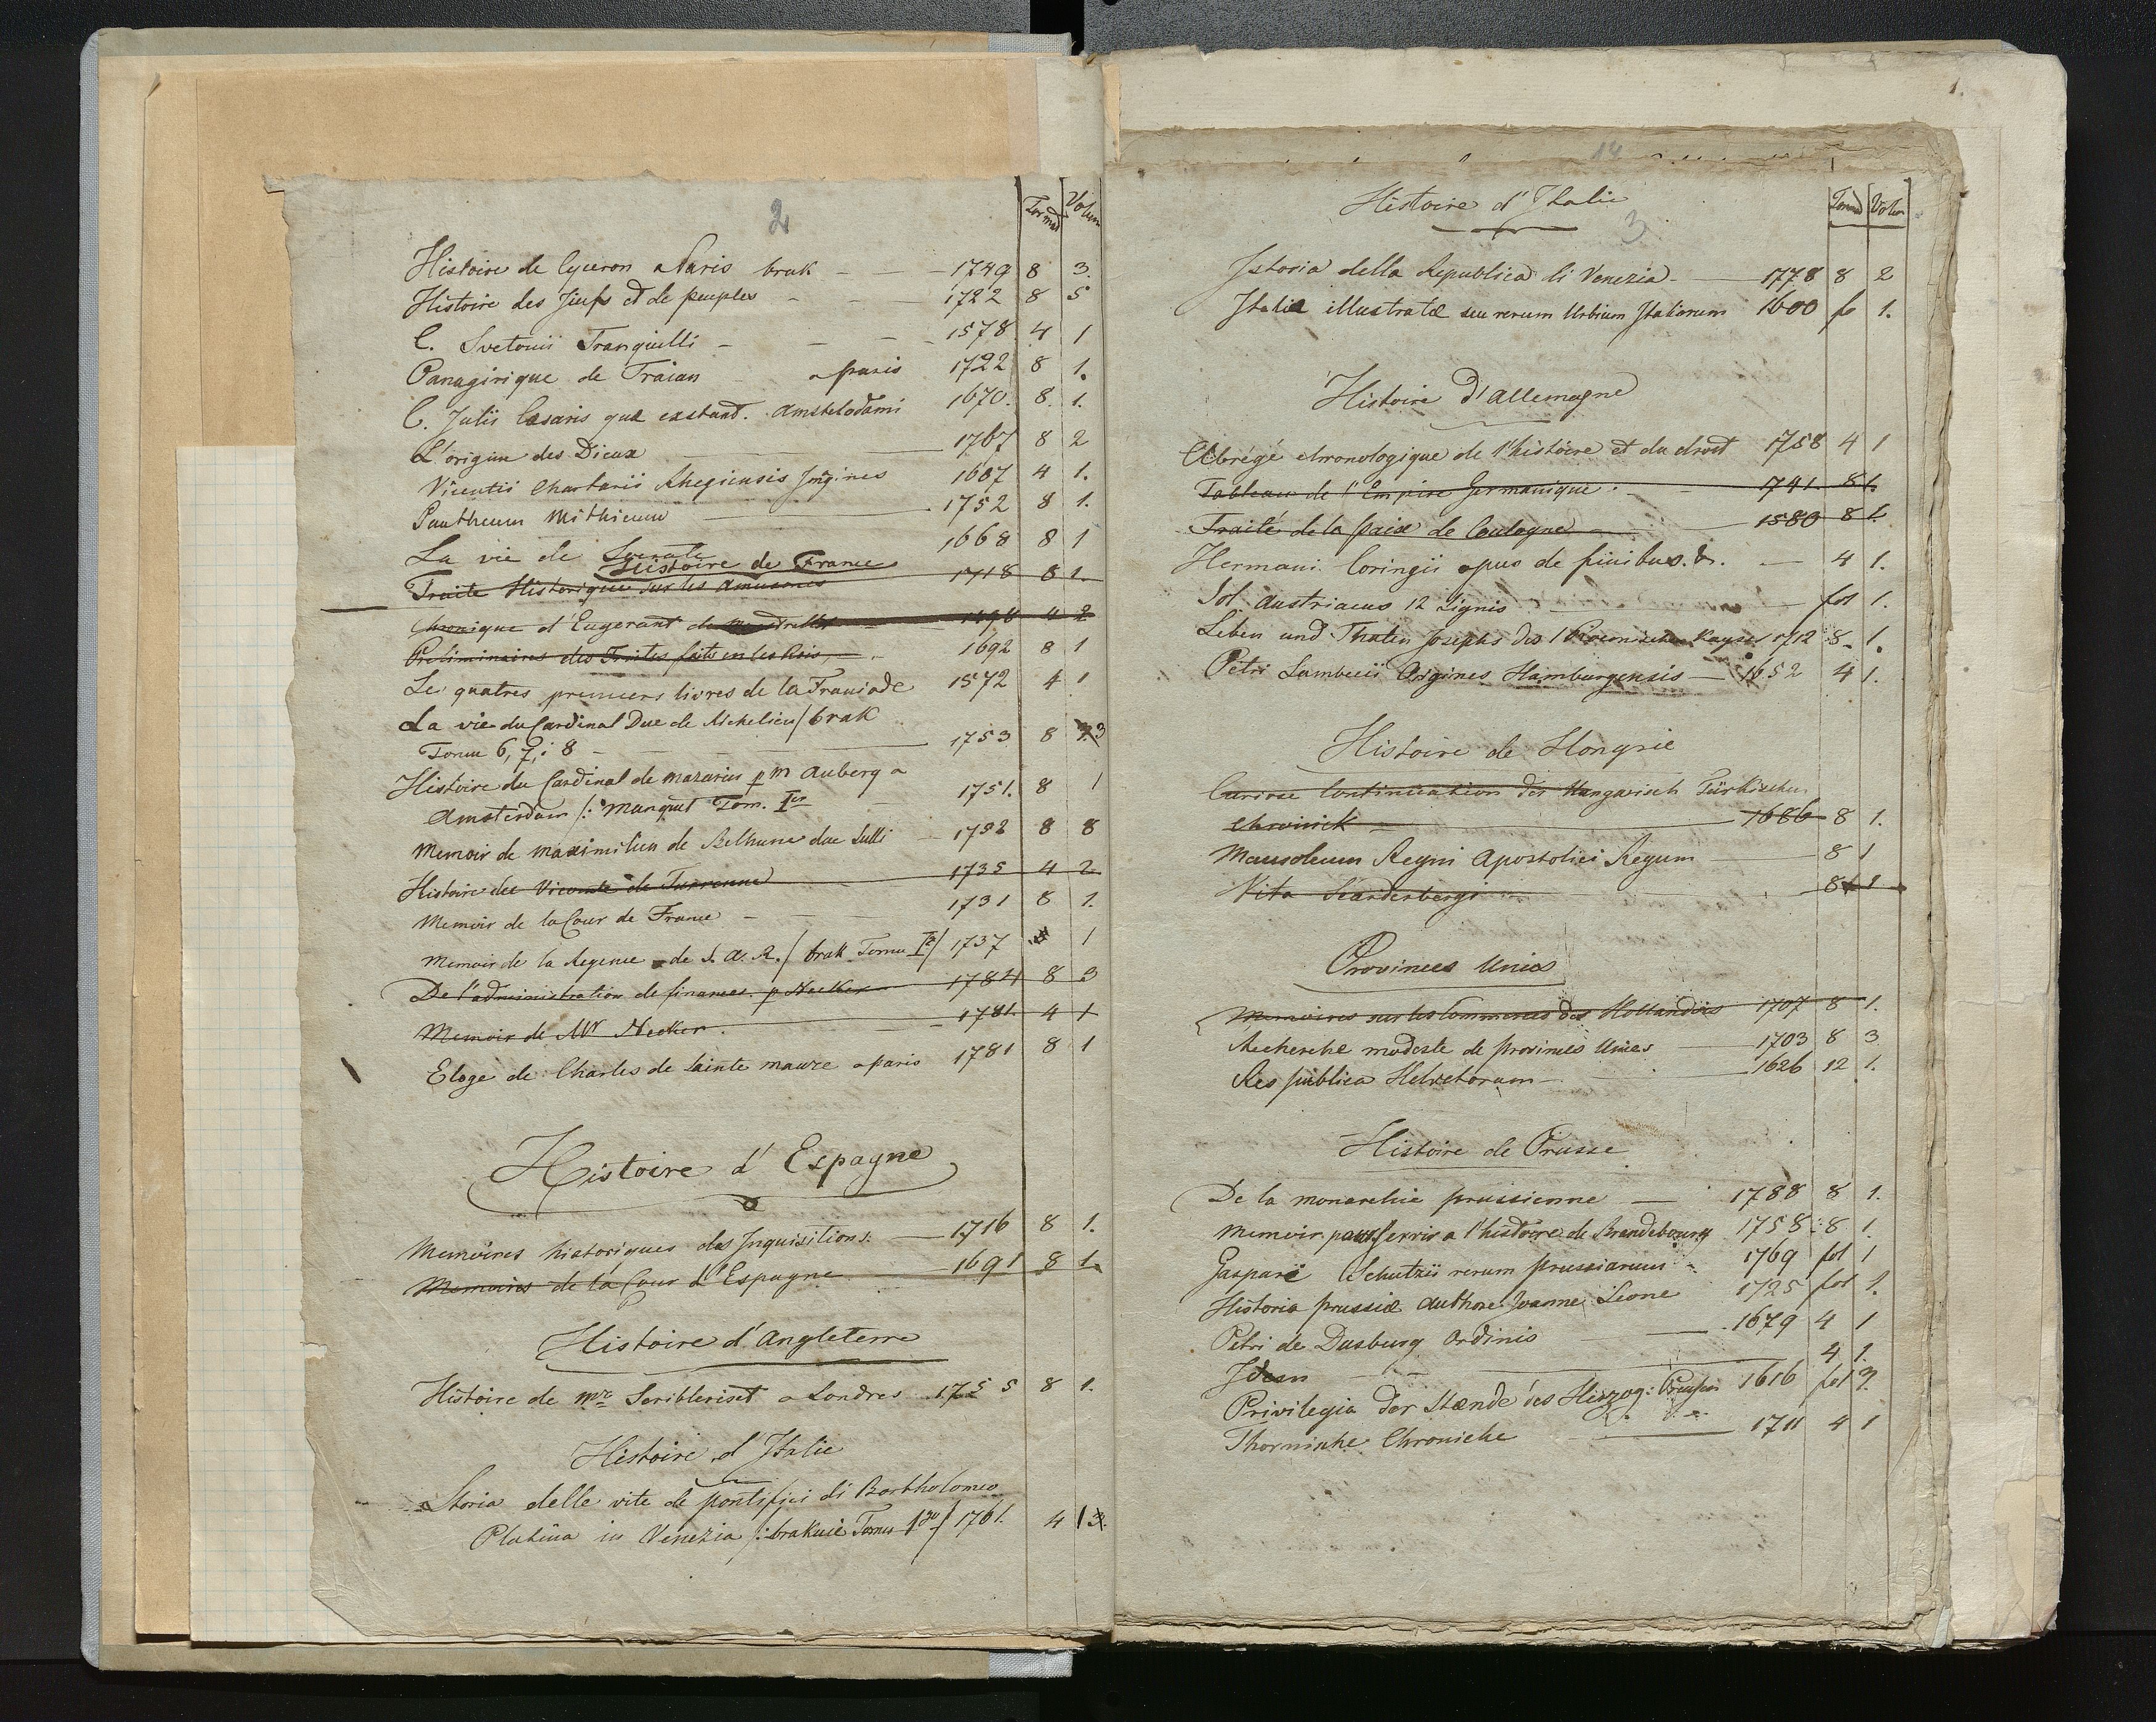 2
Format Volum
Histoire de Cyceron a Paris brak - - - 1749 8 3.
Histoire des Juifs et de peuples - - 1722 8 5
C. Svetonii Tranquilli - - - 1578 4 1
Panagirique de Traian a paris 1722 8 1.
C. Julii Cæsaris quæ exstant. Amstelodami 1670. 8. 1.
L'origine des Dieux 1767 8 2
Vicentii Chartarii Rhegiensis Imgines 1687 4 1.
Pantheum Mithicum 1752 8 1.
La vie de Socrate 1668 8 1
Histoire de France
Traite Historique sur les Amusans 1718 8 1.
Chronique d'Engerant de 4 2
Preliminaires des Traites faits en les Rois, - 1692 8 1
Le quatres premiers livres de la Franciade 1572 4 1
La vie du Cardinal Duc de Richelieu / brak
Tomu 6, 7, i 8 - - - 1753 8 3
Histoire du Cardinal de mazarin p m Auberg a
Amsterdam /: manquet Tom. Ier 1751. 8 1
Memoir de maximilien de Bethune duc Sulli 1752 8 8
Histoire des Vicomte de Turrenne 1735 4 2
Memoir de la Cour de France - - 1731 8 1.
Memoir de la Regence de S. A. R. / brak Tomu I / 1737 1
De l'administration de finances. p Necker 1784 8 3
Memoir de Mr Necker. - 1781. 4 1
Eloge de Charles de Sainte maure a paris 1781 8 1
Histoire d'Espagne
Memoires historiques des Inquisitions. 1716 8 1.
Memoires de la Cour d'Espagne 1691 8 1.
Histoire d'Angleterre
Histoire de mra Scribleriset a Londres 1755 8 1.
Histoire d'Italie
Storia delle vite de pontifici di Bartholomeo
Platina in Venezia /: brakuie Tomu 1go / 1761. 4 3.
1.
14
Histoire d'Italie
3
Format Volum
Istoria della Republica di Venezia - 1778 8 2
Italiæ illustratæ seu rerum Urbium Italiarum 1600 fo 1.
Histoire d'Allemagne
Abrégé chronologique de l'histoire et du droit 1758 4 1
Tableau de l'Empire Germanique. - 1741. 8 1.
Traité de la paix de Coulogne 1580 8 1.
Hermani Coringii opus de finibus. &. - 4 1.
Sol Austriacus 12 Lignis - fol 1.
Leben und Thaten Josephs des I Roemischen Kayser 1712 8. 1.
Petri Lambecii Origines Hamburgensis - 1652 4 1.
Histoire de Hongrie
Curiose Continuation der Hungarisch Türkischen
Chronick - 1686 8 1.
Mausoleum Regni Apostolici Regum 8 1
Vita Scanderbergi 8 1
Provinces Unies
Memoires sur les Commerces des Hollandois 1707 8 1.
Recherche modeste de provinces Unies 1703 8 3
Res publica Helvetorum - 1626 12 1.
Histoire de Prusse
De la monarchie prussienne - 1788 8 1.
Memoir pour servir a l'histoire de Brandebourg 1758 8 1.
Gasparii Schutzii rerum prussiarum - 1769 fol 1
Historia prussiæ authore Joanne Leone 1725 fol 1.
Petri de Dusburg Ordinis 1679 4 1
Idem - - 4 1.
Privilegia der Stænde des Herzog: Preussen 1616 fol 3.
Thornische Chroniche 1711 4 1